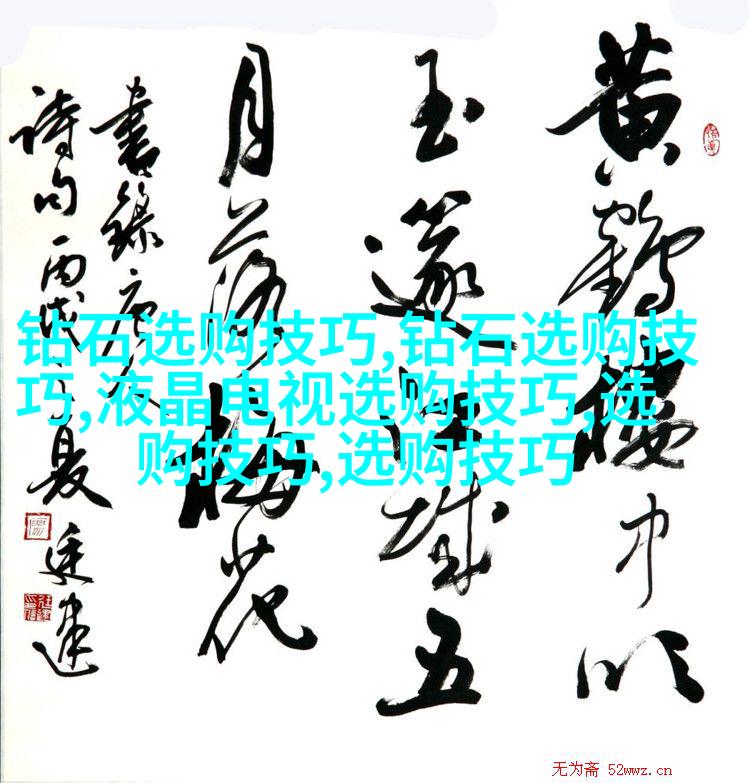 黄鹤楼中吹
玉篴江城五
月落梅花
書錄唐人
詩句丙戌夏廷建
钻石选购技巧,钻石选购技
巧,液晶电视选购技巧,选
购技巧,选购技巧
无为斋 52wwz.cn